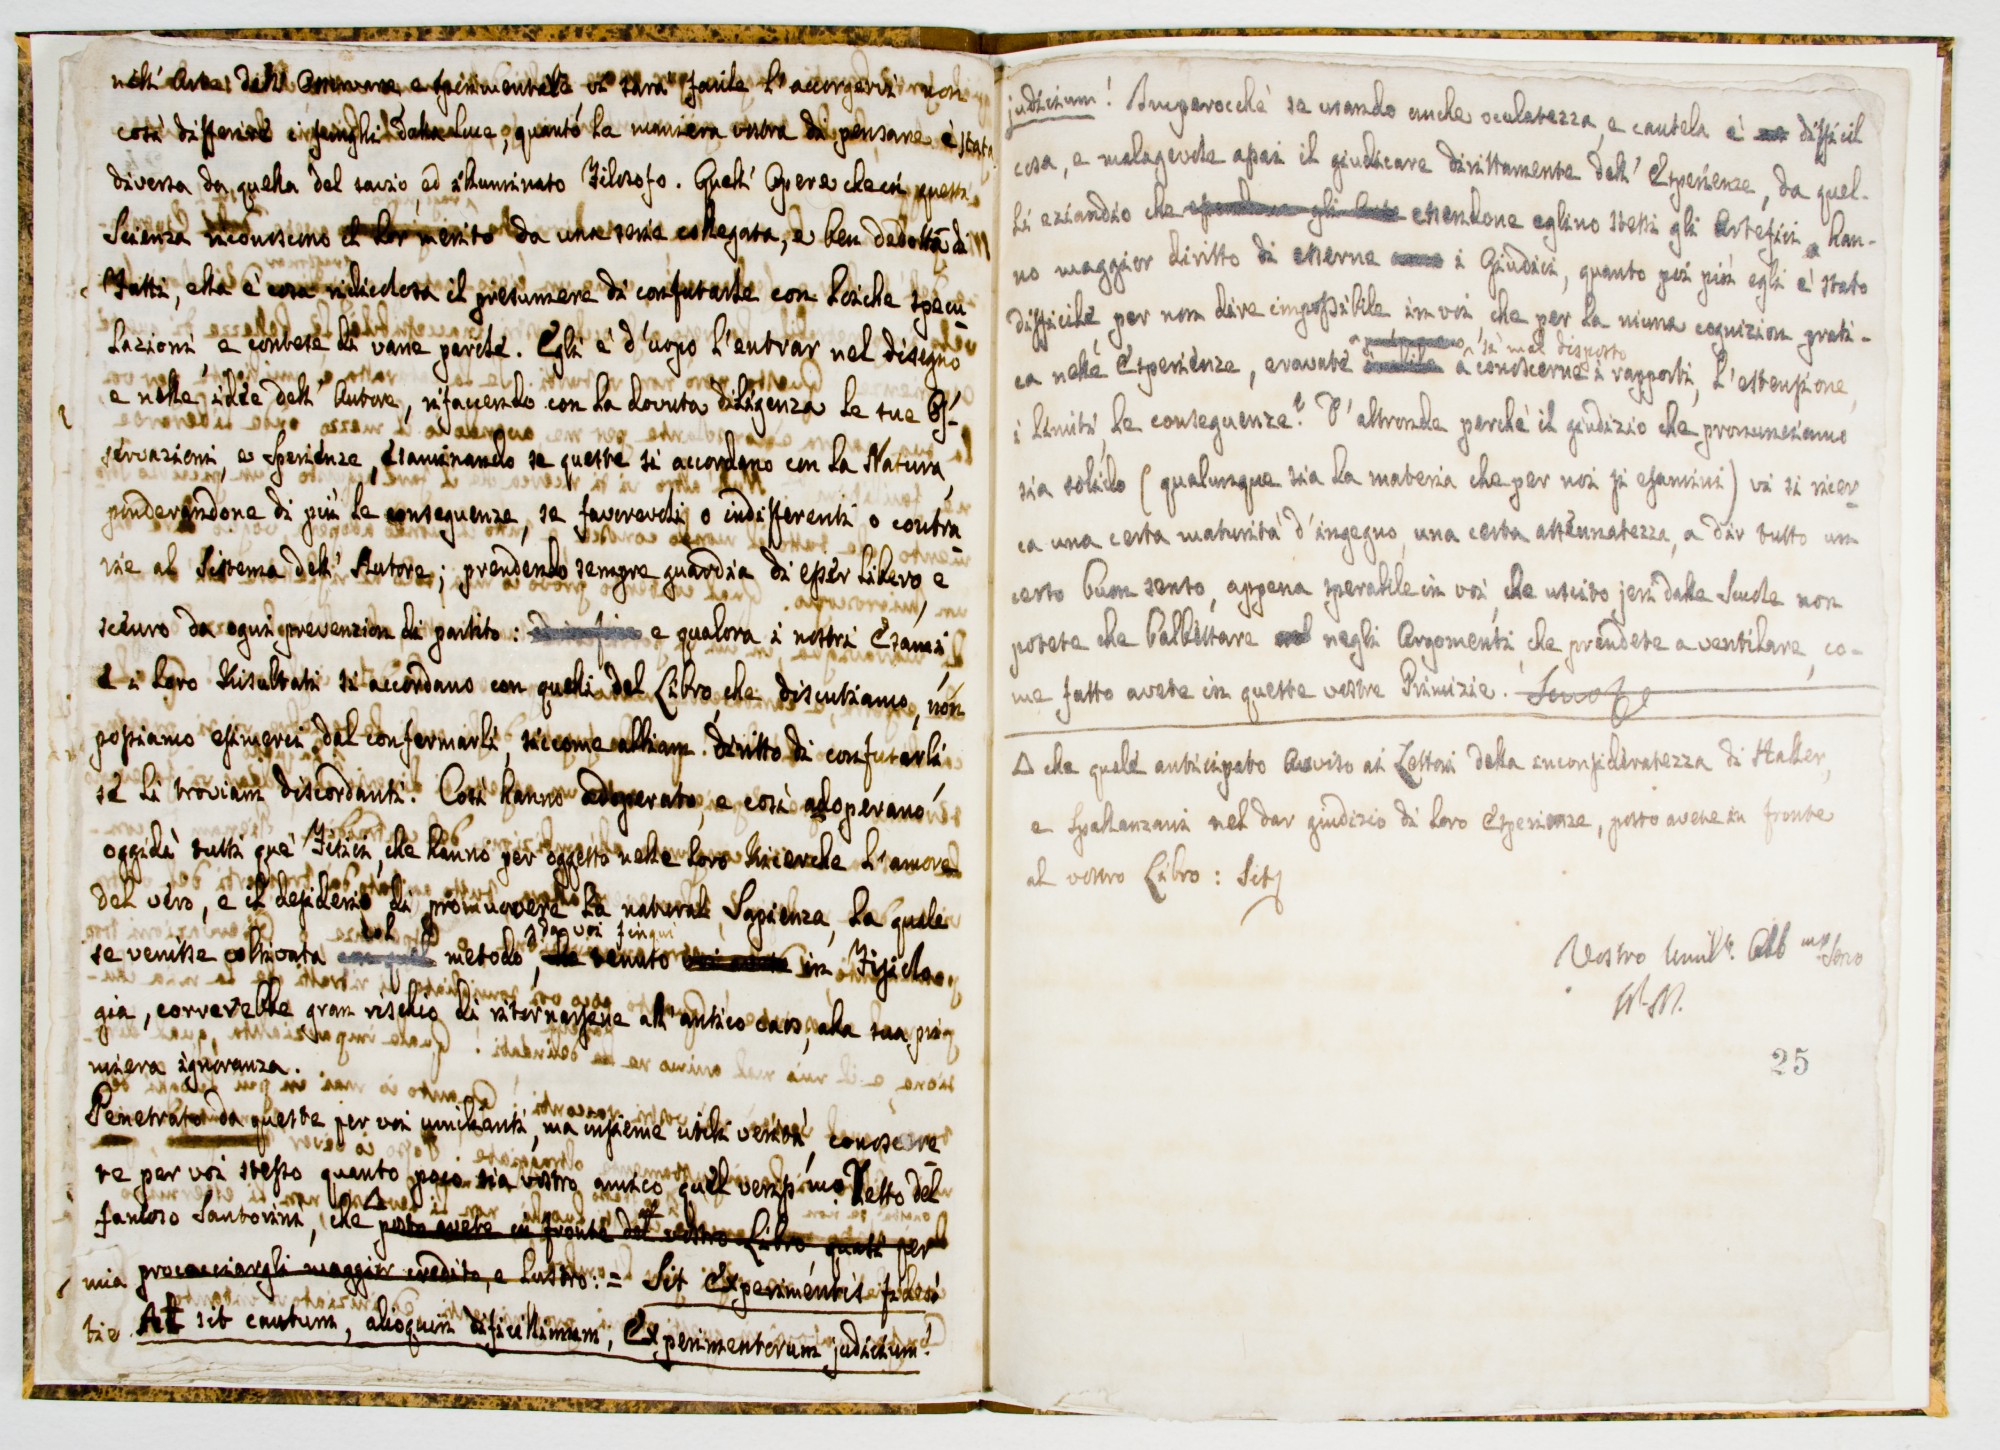 nell' Arte dell' Osservare, e sperimentale vi sarà facile l'accorgervi non
così differire i funghi dalla luce, quantó la maniera vostra di pensare è stata
diversa da quella del savio, ed illuminato Filosofo. Quell' Opere che in questa
Scienza riconoscono il lor merito da una serie collegata, e ben dedotta di
Fatti, ella è cosa ridicolosa il presumere di confutarle con loiche specu-
lazioni, e contese di vane parole. Egli è d'uopo l'entrar nel disegno
e nelle idèe dell' Autore, rifaccendo con la dovuta diligenza le sue Os-
servazioni, e Sperienze, esaminando se queste si accordano con la Natura,
ponderandone di più le conseguenze, se favorevoli, o indifferenti o contra-
rie al Sistema dell' Autore; prendendo sempre guardia di esser libero, e
scèuro da ogni prevenzion di partito: e qualora i nostri Esami,
e i loro Risultati si accordano con quelli del Libro, che discutiamo, non
possiamo esimerci dal confermarli, siccome abbiam diritto di confutarli
se li troviam discordanti. Così hanno adoperato, e così adoperano
oggidì tutti que' Fisici, che hanno per oggetto nelle loro Ricerche l'amore
del vero, e il desiderio di promuovere la naturale Sapienza, la quale
col da voi
se venisse coltivata metodo, tenuto in Fisiolo-
gia, correrebbe gran rischio di ritornarsene all'antico caos, alla sua pri-
miera ignoranza.
Penetrato da queste per voi umilianti, ma insieme utili verità, conosce-
te per voi stesso quanto poco sia vostro amico quel verissimo Detto del
famoso Santorini, che Δ posto avete in fronte del vostro Libro quasi per
mia procacciargli maggior credito, e lustro: = Sit Experimentis fides
tie. At sit cautum, alioquin dificillimum, Experimentorum judicium!
judicium! Imperocchè se usando anche oculatezza, e cautela è difficil
cosa, e malagevole assai il giudicare dirittamente dell' Esperienze, da quel-
li eziandio che essendone eglino stessi gli Artefici, han-
no maggior diritto di esserne i Giudici, quanto poi più egli è stato
difficile, per non dire impossibile in voi, che per la niuna cognizion prati-
sì mal disposto
ca nelle Esperienze, eravate a conoscerne i rapporti, l'estensione,
i limiti, le conseguenze? D'altronde perchè il giudizio che pronunziamo
sia solido (qualunque sia la materia che per noi si esamini) vi si ricer-
ca una certa maturità d'ingegno, una certa assennatezza, a dir tutto un
certo buon senso, appena sperabile in voi, che uscito jeri dalle Scuole non
potete che balbettare negli Argomenti, che prendete a ventilare, co-
me fatto avete in queste vostre Primizie.
Δ che quale anticipato Avviso ai Lettori della inconsideratezza di Haller,
e Spallanzani nel dar giudizio di loro Esperienze, posto avete in fronte
al vostro Libro: Sit
Vostro
N. N.
25